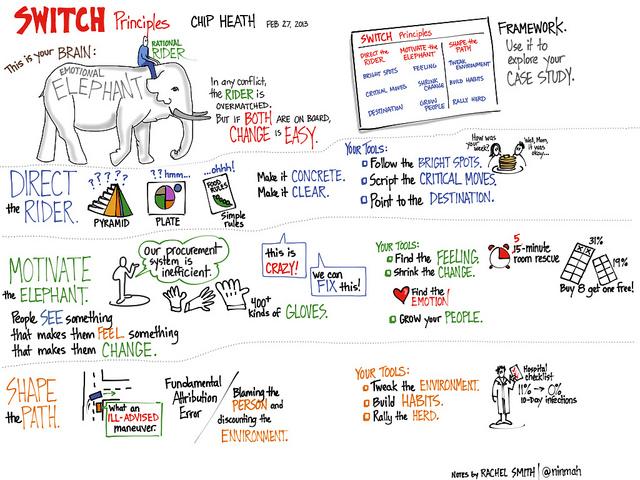 SWITCH Principles CHIP HEATH FEB 27, 2013
This is your BRAIN:
RATIONAL
RIDER
EMOTIONAL
ELEPHANT
In any conflict,
the RIDER is
OVERMATCHED.
But if BOTH are on board,
CHANGE is EASY.
SWITCH Principles
DIRECT the
RIDER
BRIGHT SPOTS
CRITICAL MOVES
DESTINATION
MOTIVATE the
ELEPHANT
FEELING
SHRINK
CHANGE
GROW
PEOPLE
SHAPE the
PATH
TWEAK
ENVIRONMENT
BUILD HABITS
RALLY HERD
FRAMEWORK.
Use it to
explore your
CASE STUDY.
DIRECT
the RIDER.
? ? ? ? ?
PYRAMID
??hmm...
PLATE
...ohhh!
FOOD
RULES
Simple
rules
Make it CONCRETE.
Make it CLEAR.
YOUR TOOLS:
Follow the BRIGHT SPOTS.
Script the CRITICAL MOVES.
Point to the DESTINATION.
How was
your
week?
Well, Mom,
it was
okay...
MOTIVATE
the ELEPHANT.
People SEE something
that makes them FEEL something
that makes them CHANGE.
Our procurement
system is
inefficient.
400+
kinds of GLOVES.
this is
CRAZY!
we can
FIX this!
YOUR TOOLS:
Find the FEELING.
Shrink the CHANGE.
Find the
EMOTION!
GROW your PEOPLE.
5
15-minute
room rescue
31%
19%
Buy 8 get one free!
SHAPE
the PATH.
What an
ILL-ADVISED
maneuver.
Fundamental
Attribution
Error
Blaming the
PERSON and
discounting the
ENVIRONMENT.
YOUR TOOLS:
Tweak the ENVIRONMENT.
Build HABITS.
Rally the HERD.
Hospital
checklist
11% → 0%
10-Day infections
NOTES by RACHEL SMITH | @ninmah